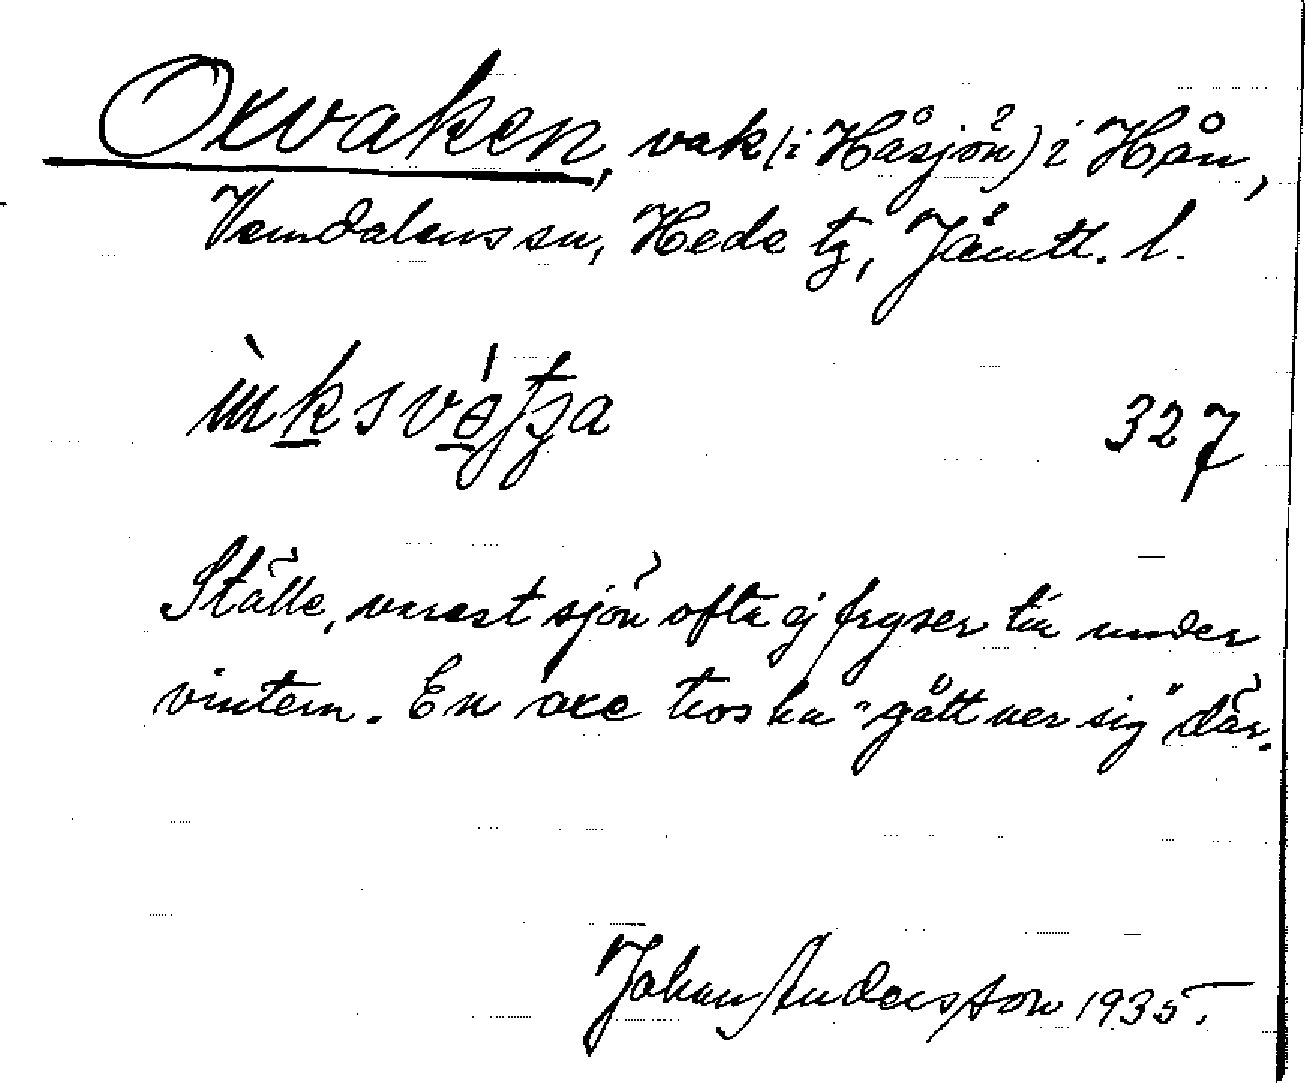 Oxvaken, vak (i Håsjön) i Hån,
Vemdalens sn, Hede tg, Jämtl. l.
327
Ställe, varest sjön ofta ej fryser till under
vintern. En oxe tros ha "gått ner sig" där.
Johan Andersson 1935.